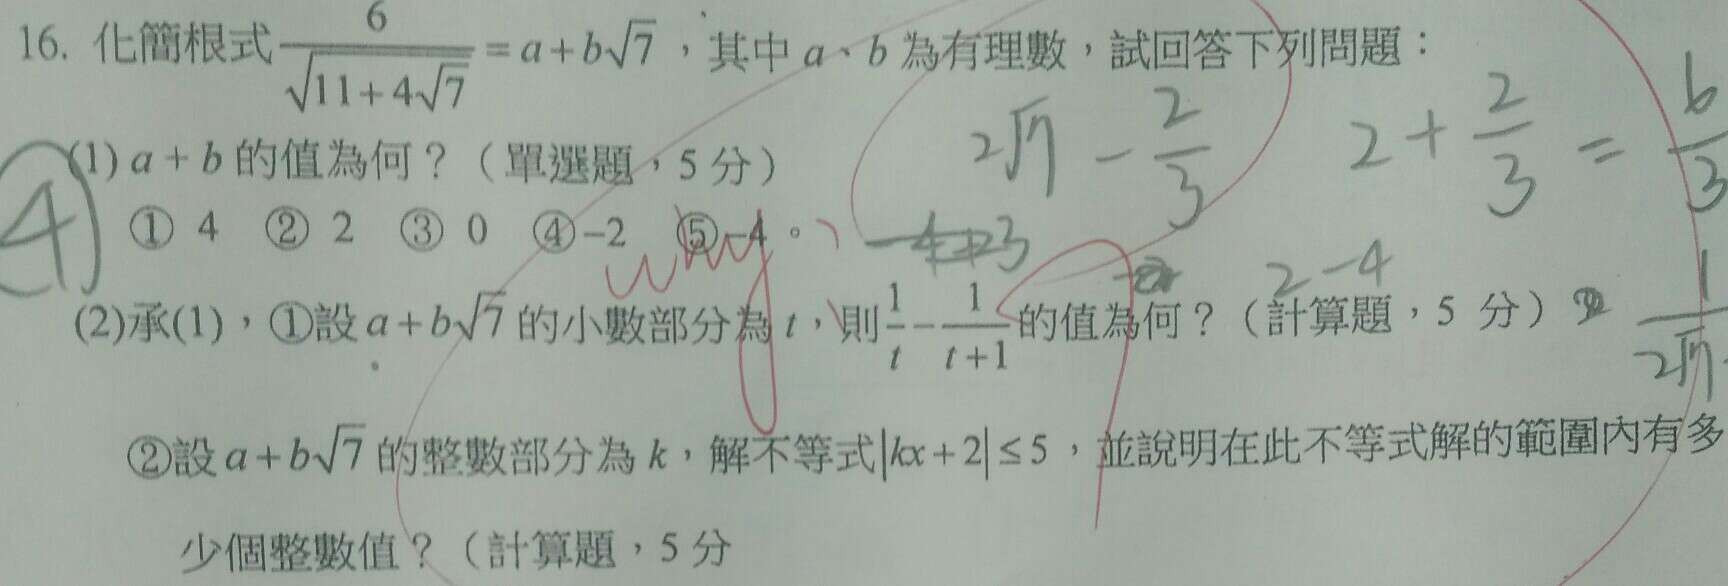 16. 化簡根式 6/√(11+4√7) = a+b√7，其中 a、b 為有理數，試回答下列問題：
2√7 − 2/3
2 + 2/3 = 6/3
(1) a + b 的值為何？（單選題，5 分）
4
① 4 ② 2 ③ 0 ④ −2 ⑤ −4。
why
2−4
(2)承(1)，①設 a + b√7 的小數部分為 t，則 1/t − 1/(t+1) 的值為何？（計算題，5 分）
②設 a + b√7 的整數部分為 k，解不等式|kx + 2| ≤ 5，並說明在此不等式解的範圍內有多
少個整數值？（計算題，5 分